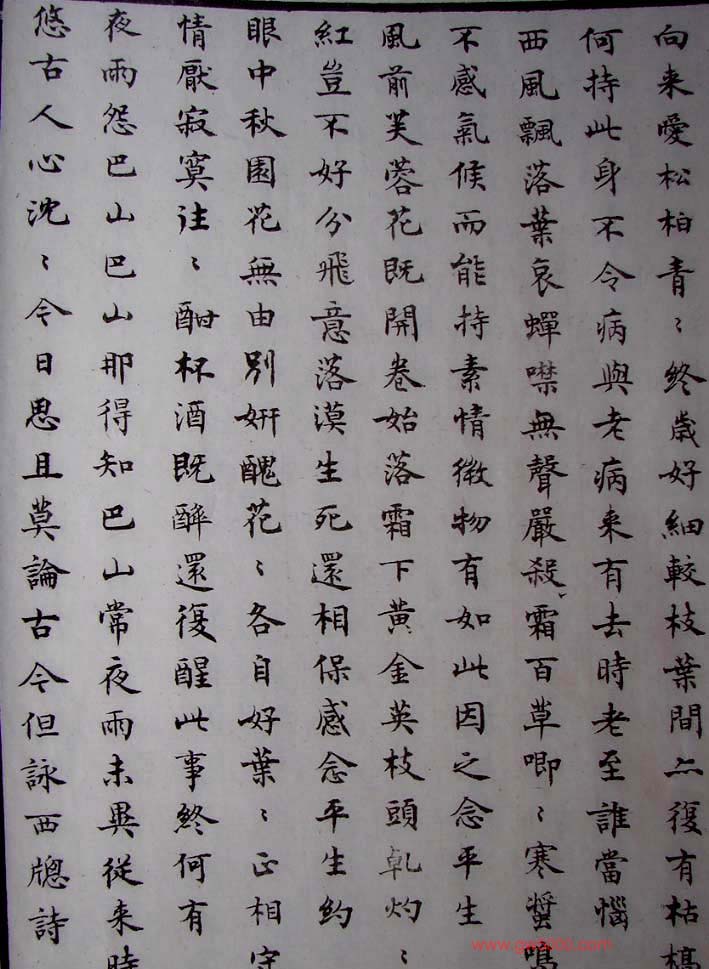 向来愛松柏青〻終歳好細較枝葉間亦復有枯槁
何持此身不令病與老病来有去時老至誰當惱
西風飄落葉哀蟬噤無聲嚴殺霜百草唧〻寒螿鳴
不感氣候而能持素情微物有如此因之念平生
風前芙蓉花既開卷始落霜下黄金英枝頭乹灼〻
紅豈不好分飛意落漠生死還相保感念平生約
眼中秋園花無由別妍醜花〻各自好葉〻正相守
情厭寂寞往〻酣杯酒既醉還復醒此事終何有
夜雨怨巴山巴山那得知巴山常夜雨未異従来時
悠古人心沈〻今日思且莫論古今但詠西牕詩